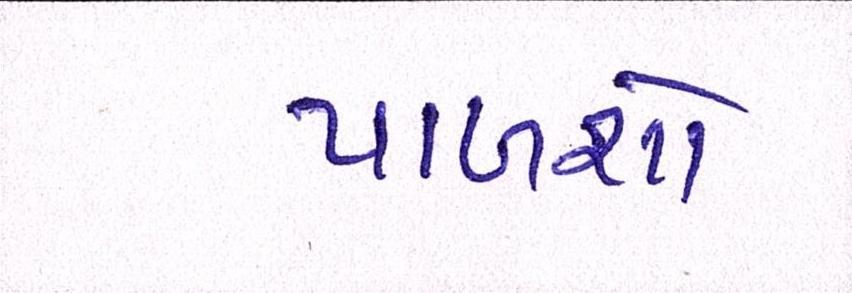 પાળશો